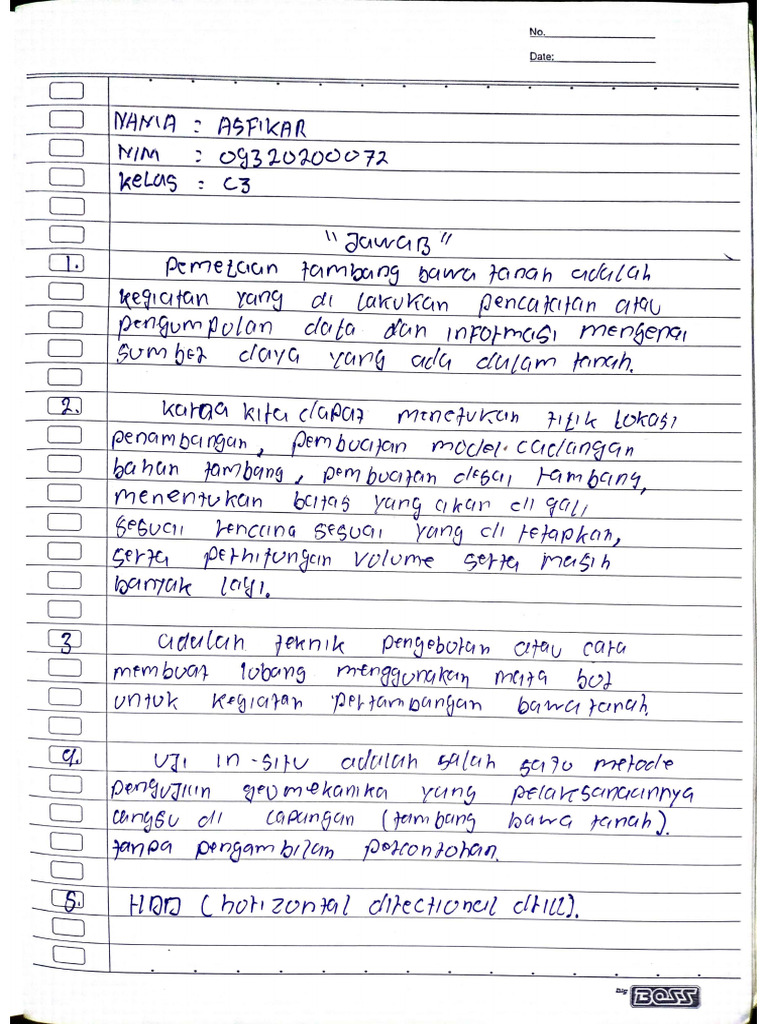 No.
Date:
NAMA : ASFIKAR
NIM : 09320200072
Kelas : C3
"JawaB"
1. Pemetaan tambang bawa tanah adalah
kegiatan yang di lakukan pencatatan atau
pengumpolan data dan informasi mengenai
sumber daya yang ada dalam tanah.
2. Karna kita dapat menetukan titik lokasi
penambangan, pembuatan model cadangan
bahan tambang, pembuatan desai tambang,
menentukan batas yang akan di gali
sesuai rencana sesuai yang di tetapkan,
serta perhitungan volume serta masih
banyak lagi.
3 adalah teknik pengeboran atau cara
membuat lobang menggunakan mata bor
untuk kegiatan pertambangan bawa tanah.
4. Uji in-situ adalah salah satu metode
pengujian geomekanika yang pelaksanaannya
langsu di lapangan (tambang bawa tanah).
tanpa pengambilan percontohan.
5. HDD (horizontal directional drill).
Big BOSS